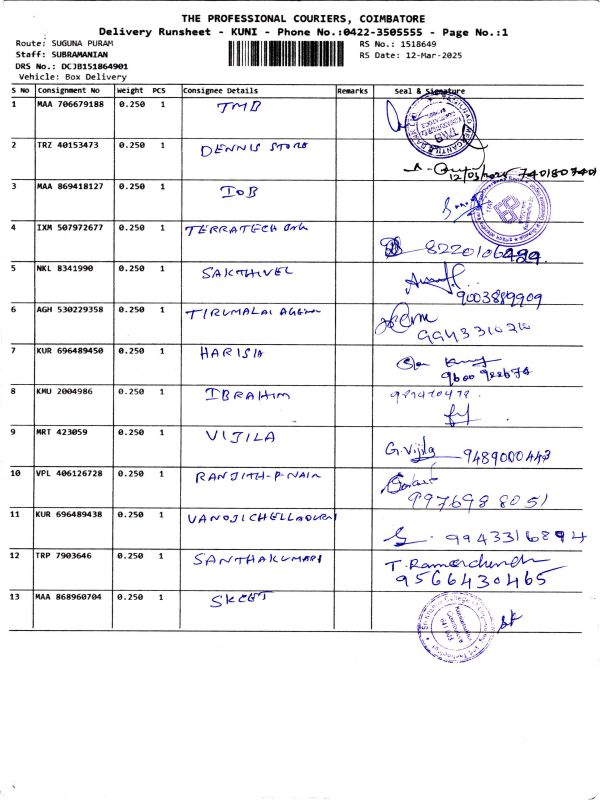 THE PROFESSIONAL COURIERS, COIMBATORE
Delivery Runsheet - KUNI - Phone No.:0422-3505555 - Page No.:1
Route: SUGUNA PURAM
Staff: SUBRAMANIAN
DRS No.: DCJB151864901
Vehicle: Box Delivery
RS No.: 1518649
RS Date: 12-Mar-2025
S No Consignment No Weight PCS Consignee Details Remarks Seal & Signature
1 MAA 706679188 0.250 1 TMB
2 TRZ 40153473 0.250 1 DENNIS STORE
12/03/2025 7401807401
3 MAA 869418127 0.250 1 IOB
4 IXM 507972677 0.250 1 TERRATECH
8220106499
5 NKL 8341990 0.250 1 SAKTHIVEL
9003889909
6 AGH 530229358 0.250 1 TIRUMALAI
9943310210
7 KUR 696489450 0.250 1 HARISH
8 KMU 2004986 0.250 1 IBRAHIM
9 MRT 423059 0.250 1 VIJILA G. Vijila 9489000443
10 VPL 406126728 0.250 1 RANJITH-P-NAIR
9976988051
11 KUR 696489438 0.250 1 VANOJICHELLADURAI
9943316894
12 TRP 7903646 0.250 1 SANTHAKUMARI T. Ramachandran
9566430465
13 MAA 868960704 0.250 1 SKCET